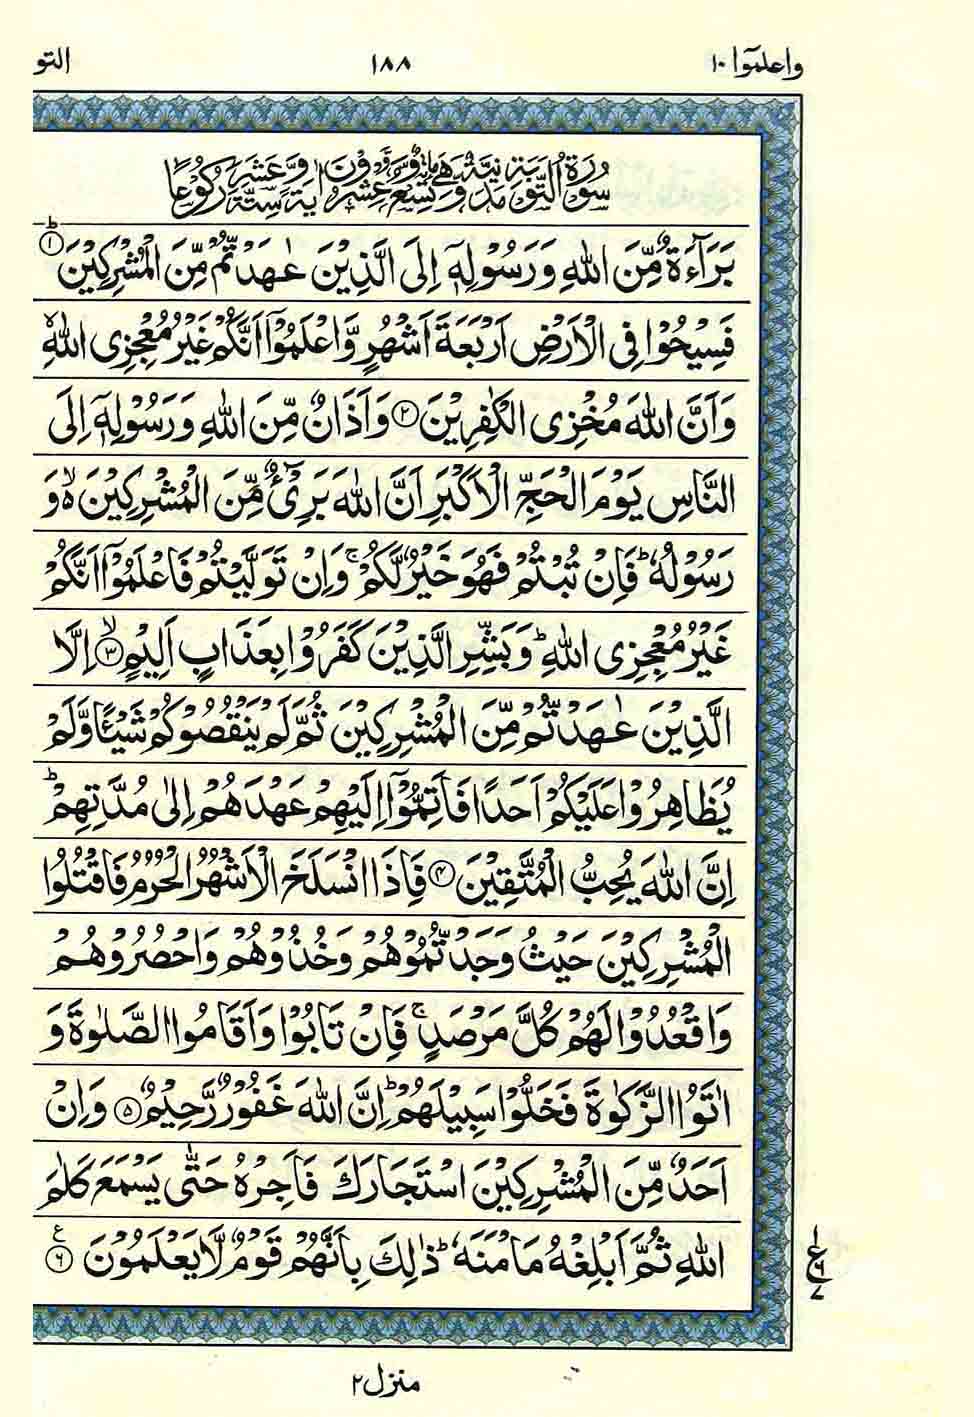 واعلموا ١٠ ١٨٨ التو
سُوْرَةُ التَّوْبَةِ مَدَنِيَّةٌ وَّهِيَ مِائَةٌ وَّتِسْعٌ وَّعِشْرُوْنَ اٰيَةً وَّسِتَّةَ عَشَرَ رُكُوْعًا
بَرَآءَةٌ مِّنَ اللهِ وَرَسُوْلِهٖۤ اِلَى الَّذِيْنَ عٰهَدْتُّمْ مِّنَ الْمُشْرِكِيْنَؕ ۝١
فَسِيْحُوْا فِى الْاَرْضِ اَرْبَعَةَ اَشْهُرٍ وَّاعْلَمُوْۤا اَنَّكُمْ غَيْرُ مُعْجِزِى اللهِۙ
وَاَنَّ اللهَ مُخْزِى الْكٰفِرِيْنَ ۝٢ وَاَذَانٌ مِّنَ اللهِ وَرَسُوْلِهٖۤ اِلَى
النَّاسِ يَوْمَ الْحَجِّ الْاَكْبَرِ اَنَّ اللهَ بَرِىْٓءٌ مِّنَ الْمُشْرِكِيْنَ ۙ۬ وَ
رَسُوْلُهٗؕ فَاِنْ تُبْتُمْ فَهُوَ خَيْرٌ لَّكُمْۚ وَاِنْ تَوَلَّيْتُمْ فَاعْلَمُوْۤا اَنَّكُمْ
غَيْرُ مُعْجِزِى اللهِؕ وَبَشِّرِ الَّذِيْنَ كَفَرُوْا بِعَذَابٍ اَلِيْمٍۙ ۝٣ اِلَّا
الَّذِيْنَ عٰهَدْتُّمْ مِّنَ الْمُشْرِكِيْنَ ثُمَّ لَمْ يَنْقُصُوْكُمْ شَيْـًٔا وَّلَمْ
يُظَاهِرُوْا عَلَيْكُمْ اَحَدًا فَاَتِمُّوْۤا اِلَيْهِمْ عَهْدَهُمْ اِلٰى مُدَّتِهِمْؕ
اِنَّ اللهَ يُحِبُّ الْمُتَّقِيْنَ ۝٤ فَاِذَا انْسَلَخَ الْاَشْهُرُ الْحُرُمُ فَاقْتُلُوا
الْمُشْرِكِيْنَ حَيْثُ وَجَدْتُّمُوْهُمْ وَخُذُوْهُمْ وَاحْصُرُوْهُمْ
وَاقْعُدُوْا لَهُمْ كُلَّ مَرْصَدٍۚ فَاِنْ تَابُوْا وَاَقَامُوا الصَّلٰوةَ وَ
اٰتَوُا الزَّكٰوةَ فَخَلُّوْا سَبِيْلَهُمْؕ اِنَّ اللهَ غَفُوْرٌ رَّحِيْمٌ ۝٥ وَاِنْ
اَحَدٌ مِّنَ الْمُشْرِكِيْنَ اسْتَجَارَكَ فَاَجِرْهُ حَتّٰى يَسْمَعَ كَلٰمَ
اللهِ ثُمَّ اَبْلِغْهُ مَاْمَنَهٗؕ ذٰلِكَ بِاَنَّهُمْ قَوْمٌ لَّا يَعْلَمُوْنَ ۝٦ ع
١
ع ٦
٧
منزل ٢